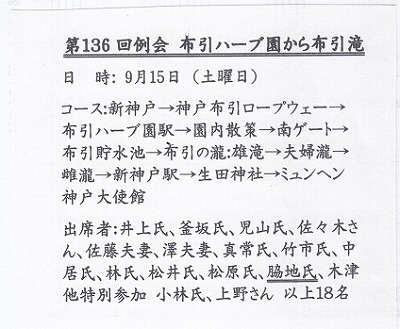 第136回例会 布引ハーブ園から布引滝
日 時: 9月15日 (土曜日)
コース:新神戸→神戸布引ロープウェー→
布引ハーブ園駅→園内散策→南ゲート→
布引貯水池→布引の瀧:雄滝→夫婦瀧→
雌瀧→新神戸駅→生田神社→ミュンヘン
神戸大使館
出席者:井上氏、釜坂氏、児山氏、佐々木さ
ん、佐藤夫妻、澤夫妻、真常氏、竹市氏、中
居氏、林氏、松井氏、松原氏、脇地氏、木津
他特別参加 小林氏、上野さん 以上18名